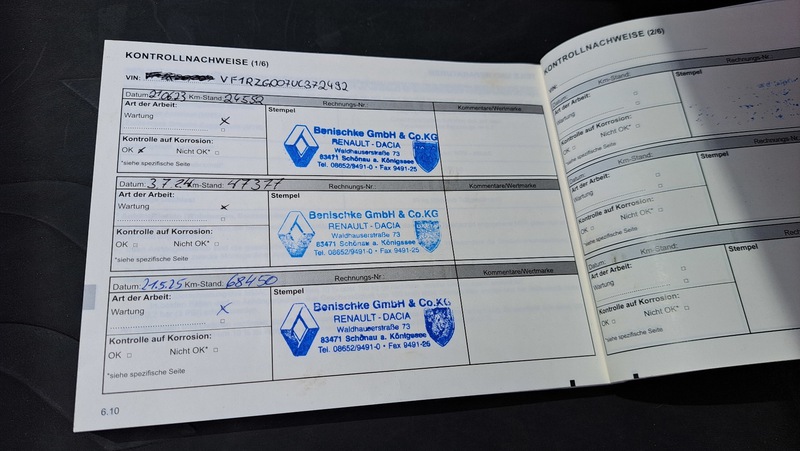 KONTROLLNACHWEISE (1/6)
VIN: VF1RZG007UC372492
Datum: 21.06.23 Km-Stand: 24592 Rechnungs-Nr.: Kommentare/Wertmarke
Art der Arbeit: Stempel
Wartung x
Kontrolle auf Korrosion:
OK x Nicht OK*
*siehe spezifische Seite
Benischke GmbH & Co.KG
RENAULT - DACIA
Waldhauserstraße 73
83471 Schönau a. Königssee
Tel. 08652/9491-0 • Fax 9491-25
Datum: 3.7.24 Km-Stand: 47377 Rechnungs-Nr.: Kommentare/Wertmarke
Art der Arbeit: Stempel
Wartung x
Kontrolle auf Korrosion:
OK Nicht OK*
*siehe spezifische Seite
Benischke GmbH & Co.KG
RENAULT - DACIA
Waldhauserstraße 73
83471 Schönau a. Königssee
Tel. 08652/9491-0 • Fax 9491-25
Datum: 21.5.25 Km-Stand: 68450 Rechnungs-Nr.: Kommentare/Wertmarke
Art der Arbeit: Stempel
Wartung x
Kontrolle auf Korrosion:
OK Nicht OK*
*siehe spezifische Seite
Benischke GmbH & Co.KG
RENAULT - DACIA
Waldhauserstraße 73
83471 Schönau a. Königssee
Tel. 08652/9491-0 • Fax 9491-25
6.10
KONTROLLNACHWEISE (2/6)
VIN:
Datum: Km-Stand: Rechnungs-Nr.:
Art der Arbeit: Stempel
Wartung
Kontrolle auf Korrosion:
OK Nicht OK*
*siehe spezifische Seite
Datum: Km-Stand: Rechnungs-Nr.:
Art der Arbeit: Stempel
Wartung
Kontrolle auf Korrosion:
OK Nicht OK*
*siehe spezifische Seite
Datum: Km-Stand: Rechnungs-Nr.:
Art der Arbeit: Stempel
Wartung
Kontrolle auf Korrosion:
OK Nicht OK*
*siehe spezifische Seite